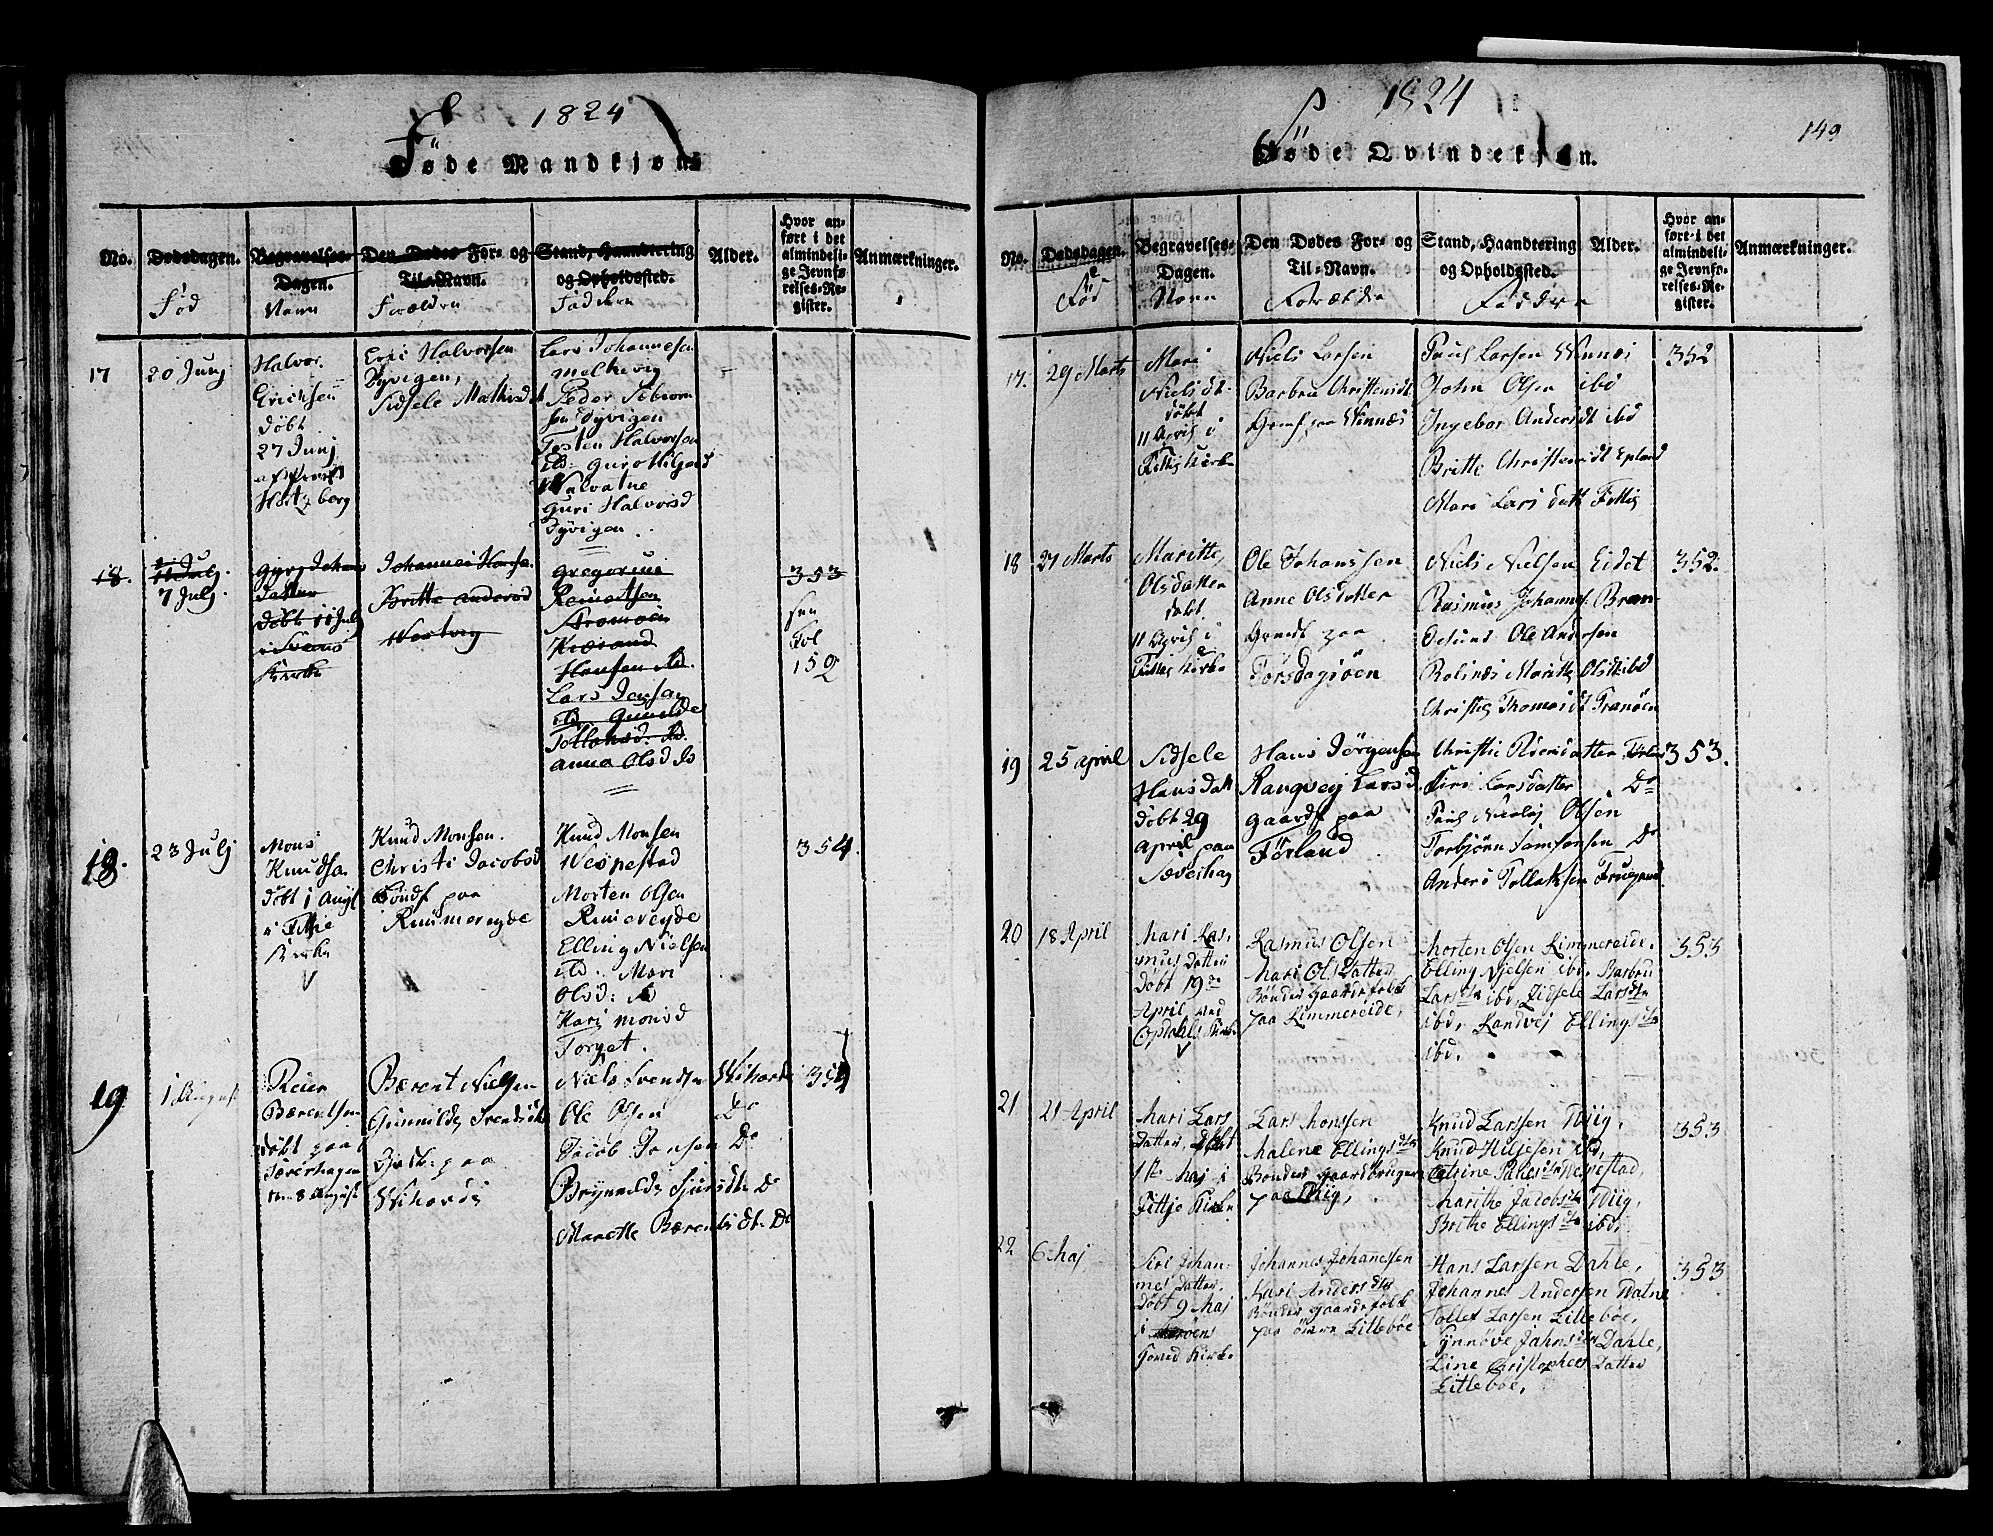 1824
Føde Mandkjøn
No.
Dødsdagen.
Fød
Begravelses-
Dagen.
Navn
Den Dødes For- og
Til-Navn.
Forældre
Stand, Haandtering
og Opholdssted.
Faddere
Alder.
Hvor an-
ført i det
almindeli-
ge Jevnfø-
relses-Re-
gister.
Anmærkninger.
17
20 Junj
Halvor
Erichsen
døbt
27 Junj
af Provst
Hertzberg
Halvorsen
Dyvigen,
Sidsele Mathisd
Lars Johannesen
Melkevig
Peder
Dyvigen
Tosten Halvorsen
ibd: Guro
Valvatne
Guri Halvorsd
Dyvigen
18.
11 Julj.
7 Julj.
Johans
datter
døbt 11 Julj
Kirke
Johannes
Britte Andersd
Gregorius
Reinertsen
Hansen ibd.
Lars Jensen
ibd Gunilde
Tollaksd. ibd.
Anna Olsd ib
353
see
Fol
152
18.
23 Julj
Mons
Knudsen
døbt 1 Augt
i Fittie
Kirke
Knud Monsen.
Christi Jacobsd
Bøndf paa
Rimmereyde
Knud Monsen
Vespestad
Morten Olsen
Rimereyde
Elling Nielsen
ibd. Mari
Olsd:
Kari Monsd
Torget.
354.
19
1 August
Reier
Bærentsen
døbt paa
Sæverhagen
den 8 August
Bærent Nielsen
Gunnilde Svendsdt
paa
Wihovde
Niels Svendsen Wihovde
Ole Olsen Do
Jacob Jansen Do
Brynnilde Sjursdt. Do
Marette Bærentsdt. Do
354
1824
149
Føde Qvindekjøn.
No.
Dødsdagen.
Fød
Begravelses-
Dagen.
Navn
Den Dødes For- og
Til-Navn.
Forældre
Stand, Haandtering
og Opholdssted.
Faddere
Alder.
Hvor an-
ført i det
almindeli-
ge Jevnfø-
relses-Re-
gister.
Anmærkninger.
17.
29 Marts
Mari
Nielsdt.
døbt
11 April i
Fittie Kirke
Niels Larsen
Barbru Christensdt
paa Winnæs
Poul Larsen Winnæs
John Olsen ibd
Ingebor Andersdt ibd
Britte Christensdt Epland
Mari Larsdatt Fittie
352
18
27 Marts
Maritte
Olsdatter
døbt
11 April i
Fittie Kirke
Ole Johanssen
Anne Olsdatter
paa
Torsdagsøen
Niels Nielsen Eidet
Rasmus Johannes. Bran-
desund Ole Andersen
Rolsnes Maritte Olsdt ibd
Christie Thomasdt Tranøen
352.
19
25 April
Sidsele
Hansdatt
døbt 29
April paa
Sæverhag
Hans Jørgensen
Rangvej Larsd
Gaardf paa
Førland
Christie
Siri Larsdatter Do
Poul Nicolaj Olsen
Torbjørn Samsonsen Do
Anders Tollaksen
353.
20
18 April
Mari Ras-
mus Datter
Døbt 19de
April, ved
Opdahls Kirke
Rasmus Olsen
Mari Ols Datter
Bønder Gaardsfolk
paa Limmereide,
Morten Olsen Limmereide,
Elling Nielsen ibd, Barbru
Lars dtr ibd, Zidsele Larsdtr
ibd, Randvej Ellings dtr
ibd.
353
21
21 April
Mari Lars
Datter, Døbt
1ste Maj i
Fittje Kirke
Lars Monssen
Malene Ellings dtr
Bønder Gaardbrugere
paa Wiig,
Knud Larssen Wiig,
Knud Hiljesen ibd,
Catrine Vespestad,
Marithe Jacobs dtr Wiig,
Brithe Ellings dtr ibd,
353
22
6 Maj
Siri Johan-
nes Datter,
Døbt 9 Maj
i
Hoved Kirke
Johannes Johanessen
Kari Anders dtr
Bønder Gaardsfolk
paa Lillebøe
Hans Larsen Dahle,
Johannes Andersen Watne
Tollef Larsen Lillebøe,
Synnøve Jahns dtr Dahle,
Line Christophers Datter
Lillebøe,
353